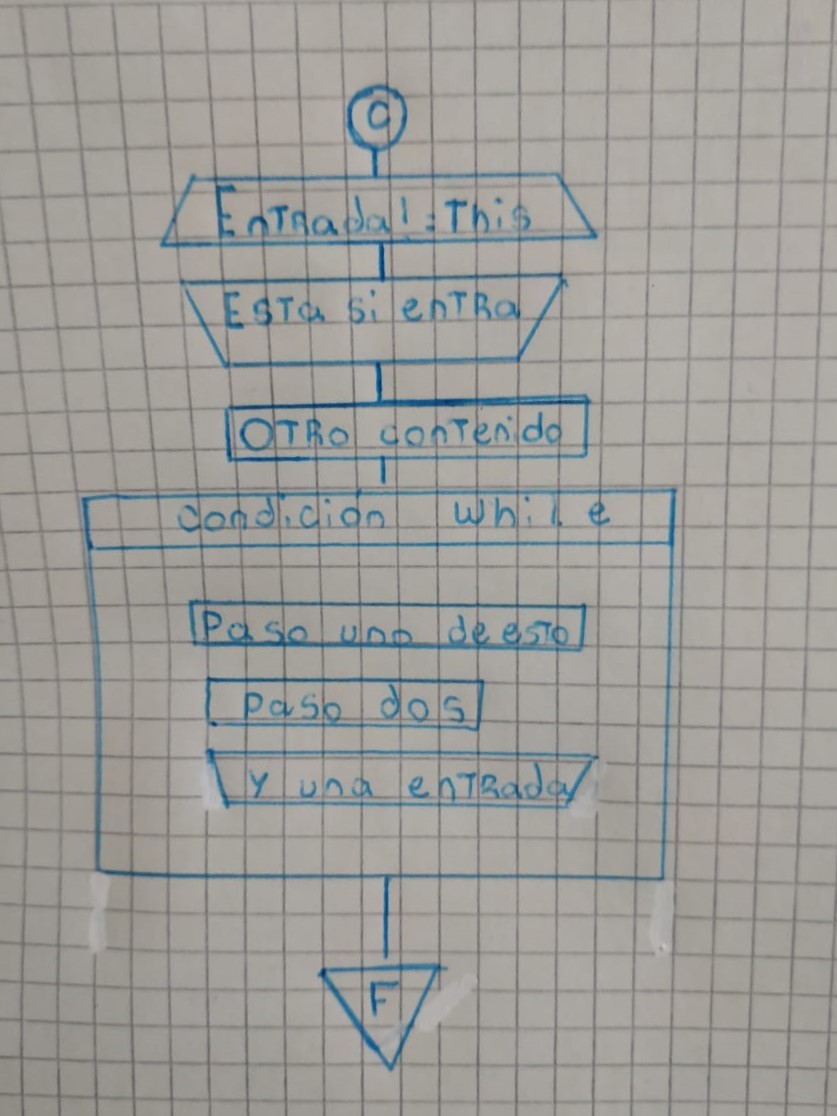 C
Entrada!=This
Esta si entra
Otro contenido
condición while
Paso uno de esto
paso dos
y una entrada
F